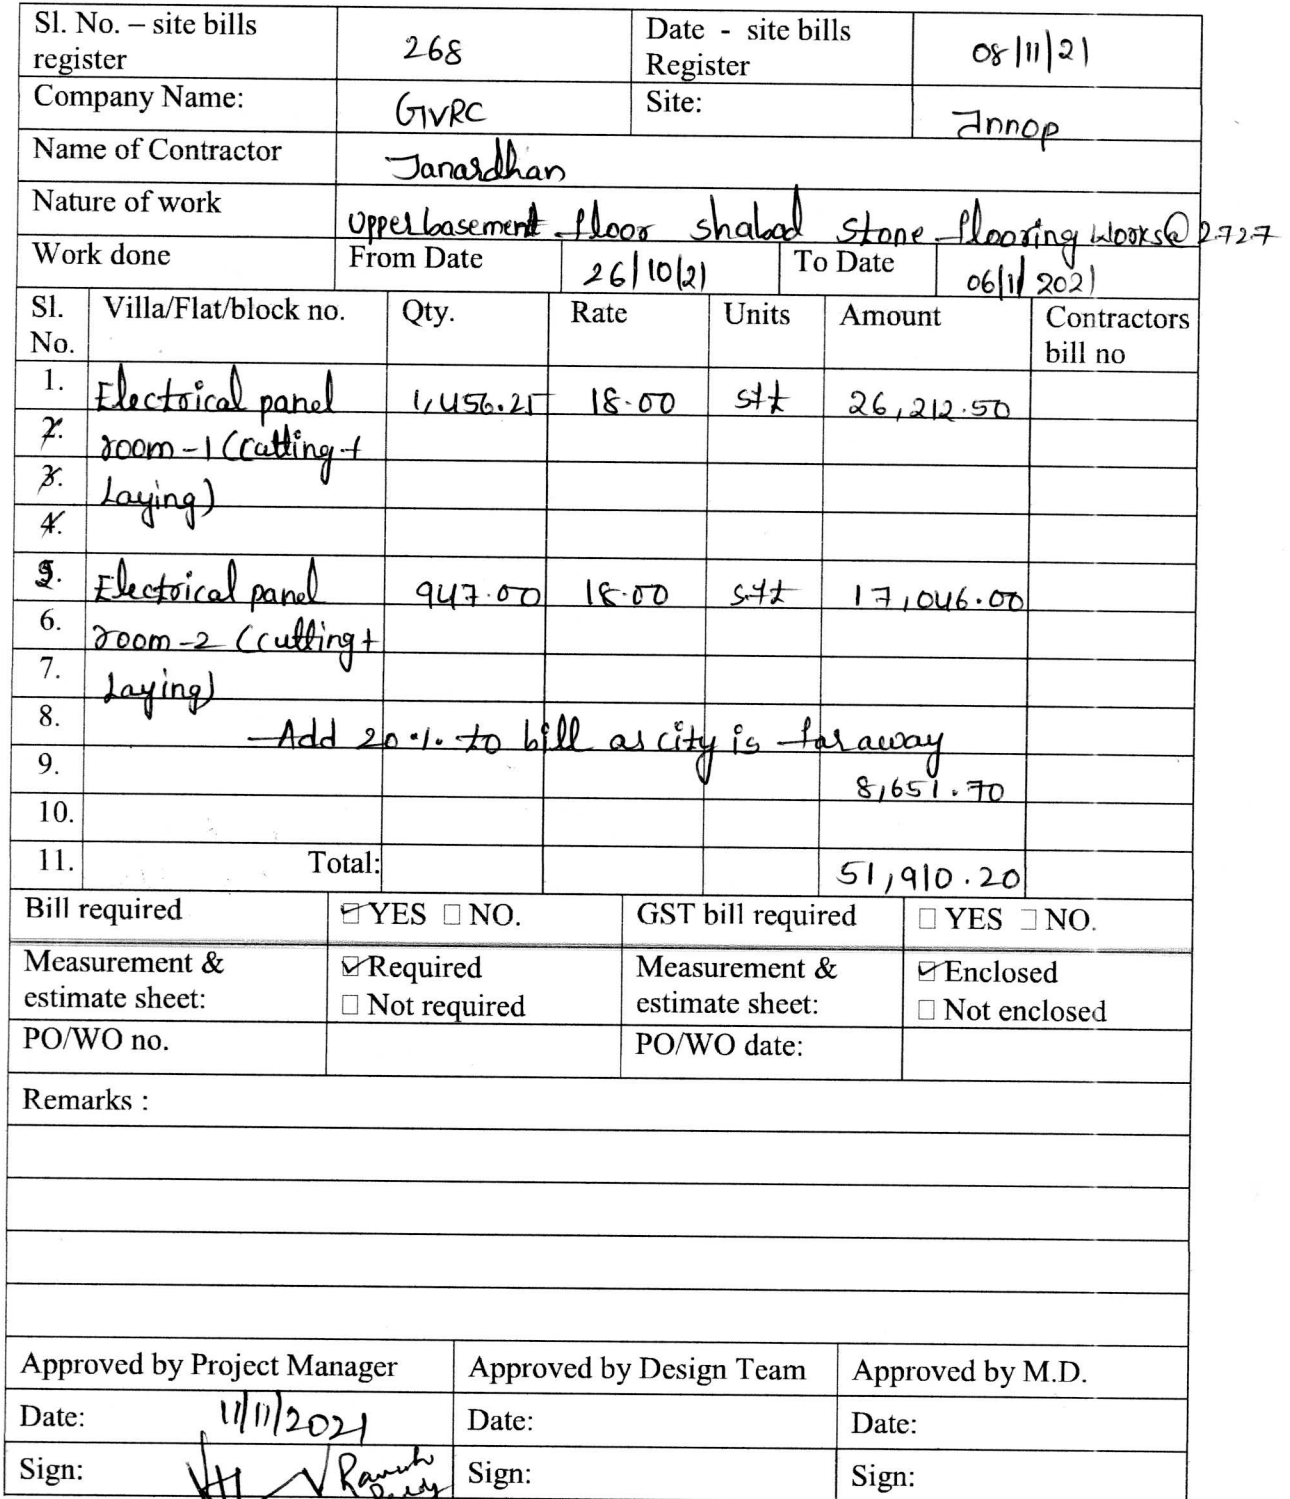 Sl. No. – site bills register 268 Date - site bills Register 08/11/21
Company Name: GVRC Site: Innop
Name of Contractor Janardhan
Nature of work Upper basement floor shabad stone flooring works@2727
Work done From Date 26/10/21 To Date 06/11/2021
Sl. No. Villa/Flat/block no. Qty. Rate Units Amount Contractors bill no
1. Electrical panel 1,456.25 18.00 sft 26,212.50
2. room-1 (cutting+
3. Laying)
4.
5. Electrical panel 947.00 18.00 sft 17,046.00
6. room-2 (cutting+
7. Laying)
8. Add 20% to bill as city is far away
9. 8,651.70
10.
11. Total: 51,910.20
Bill required YES NO. GST bill required YES NO.
Measurement & estimate sheet: Required Not required Measurement & estimate sheet: Enclosed Not enclosed
PO/WO no. PO/WO date:
Remarks :
Approved by Project Manager Approved by Design Team Approved by M.D.
Date: 11/11/2021 Date: Date:
Sign: Sign: Sign: